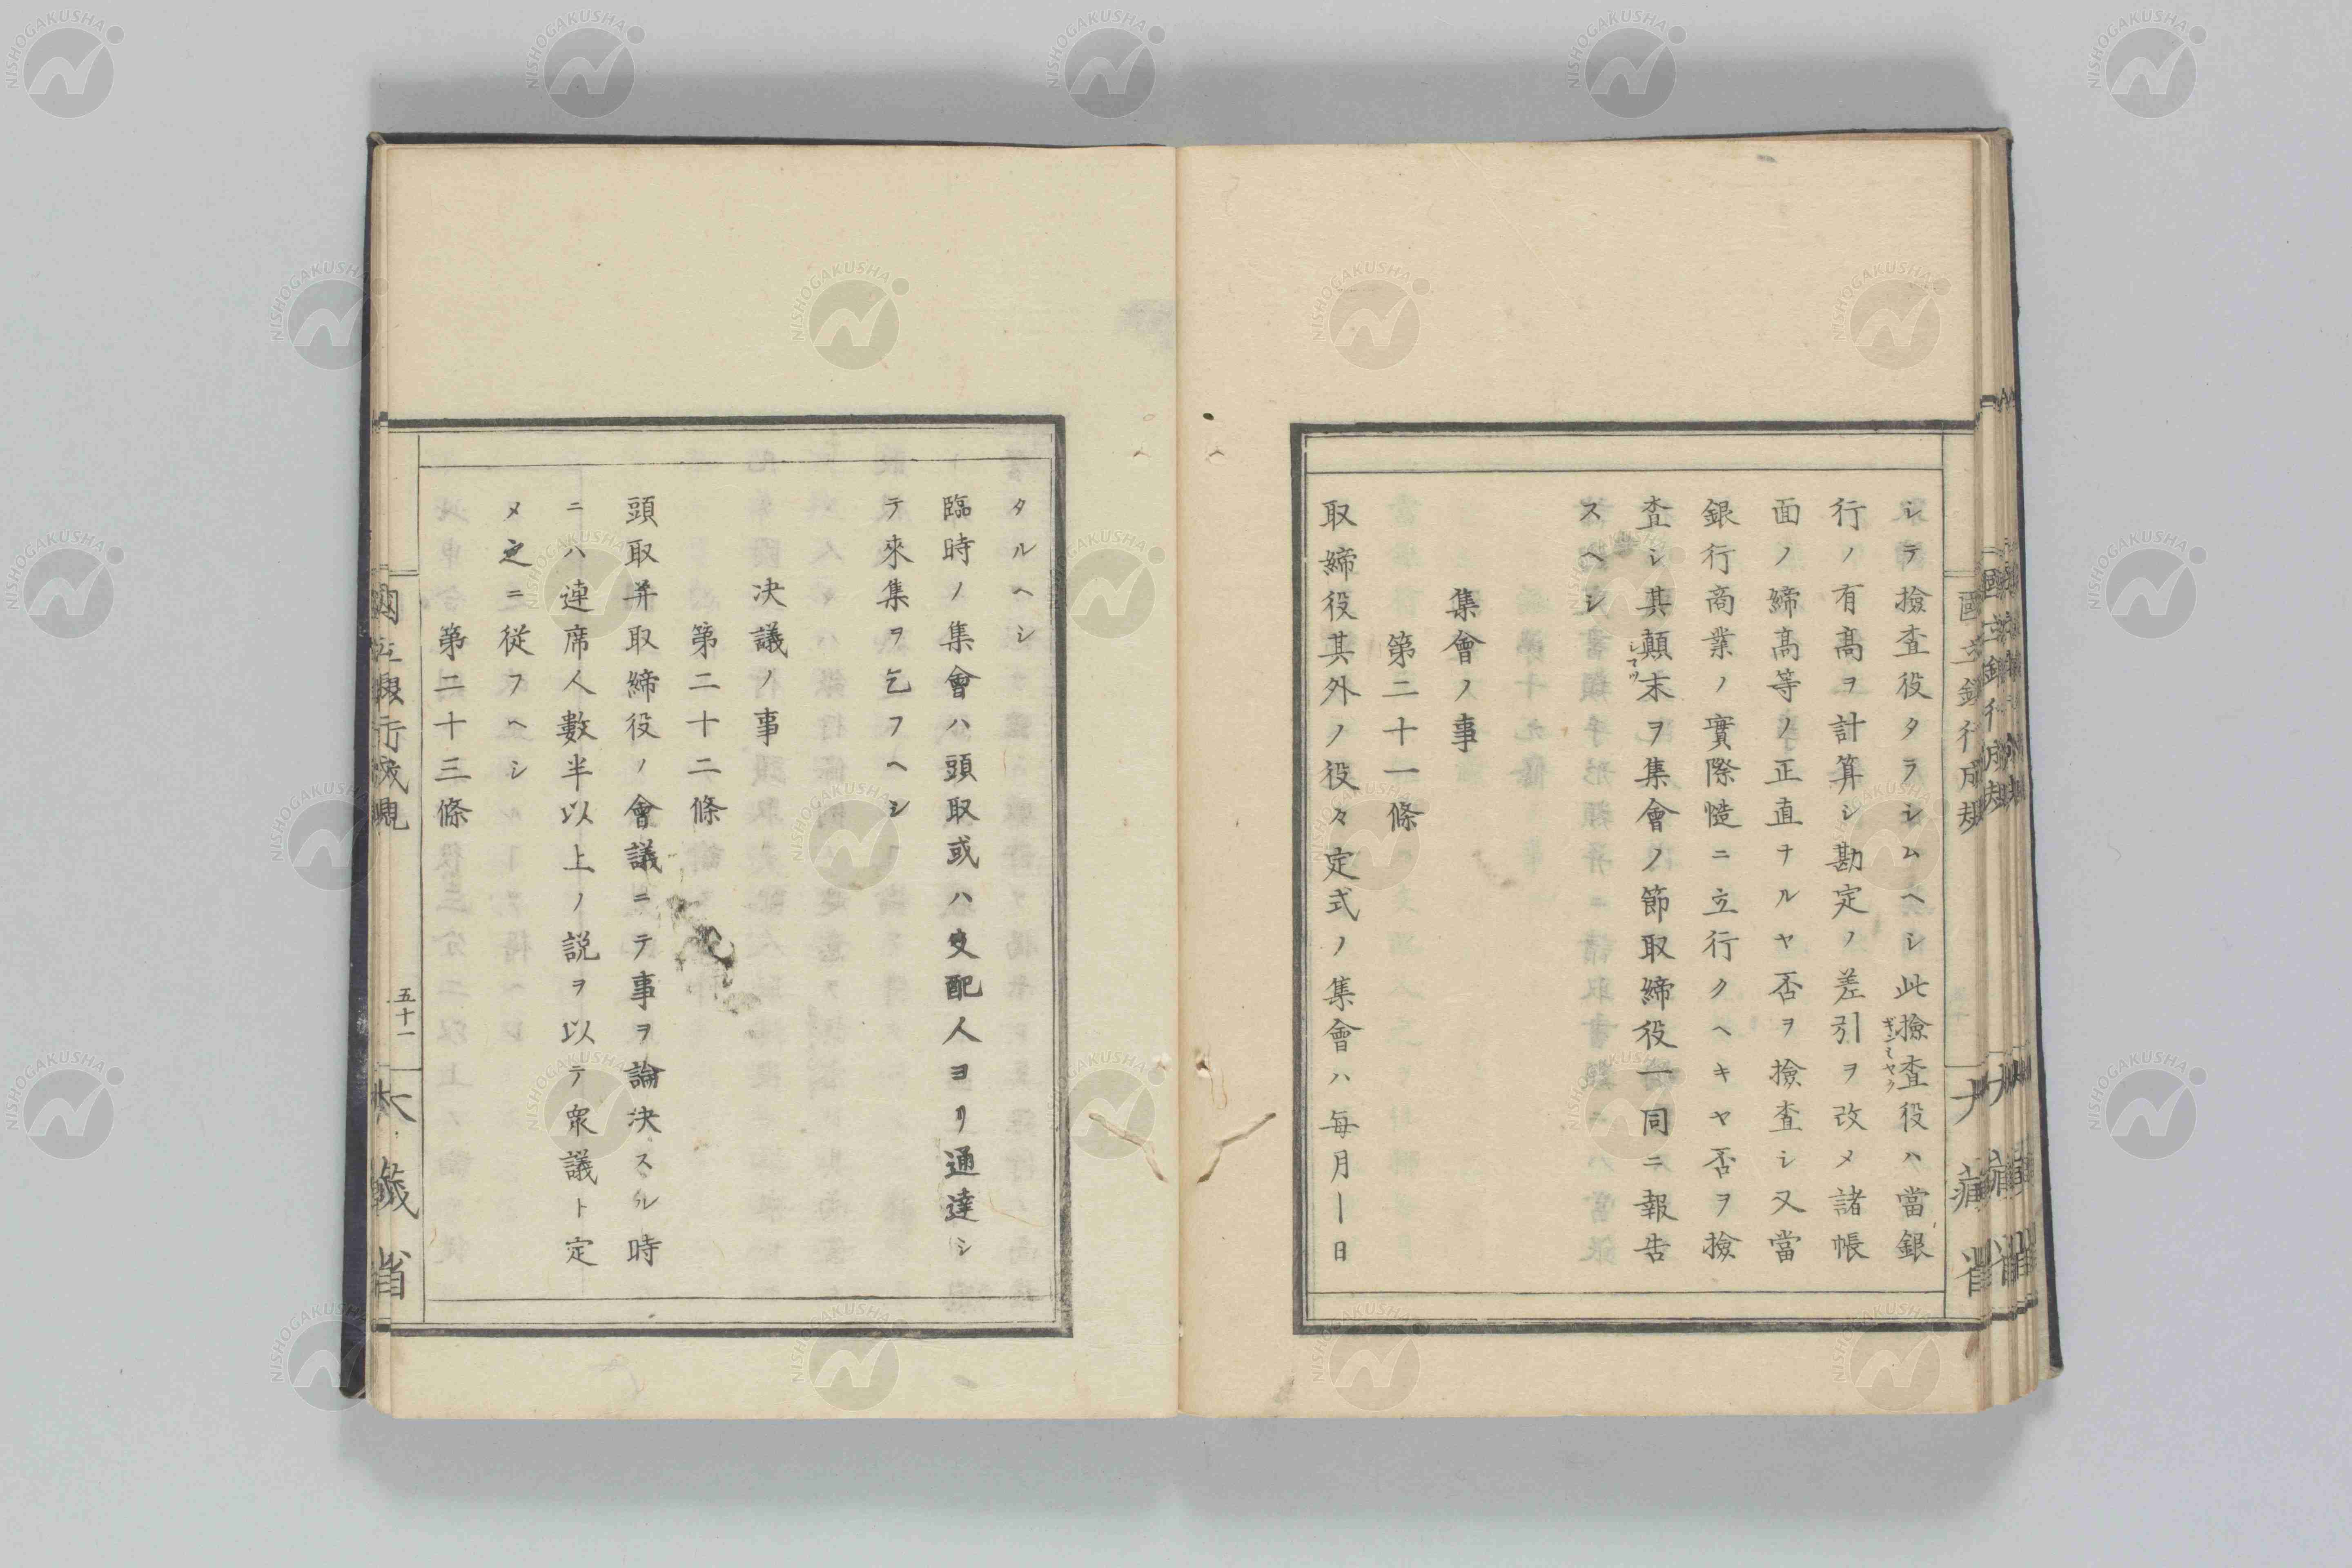 シテ撿査役タラシムヘシ此撿査役ハ當銀
行ノ有髙ヲ計算シ勘定ノ差引ヲ改メ諸帳
面ノ締髙等ノ正直ナルヤ否ヲ撿査シ又當
銀行商業ノ實際慥ニ立行クヘキヤ否ヲ撿
査シ其顛末ヲ集會ノ節取締役一同ニ報告
スヘシ
集會ノ事
第二十一條
取締役其外ノ役々定式ノ集會ハ毎月ー日
タルヘシ
臨時ノ集會ハ頭取或ハ支配人ヨリ通達シ
テ來集ヲ乞フヘシ
决議ノ事
第二十二條
頭取并取締役ノ會議ニテ事ヲ論决スル時
ニハ連席人數半以上ノ説ヲ以テ衆議ト定
メ之ニ從フヘシ
第二十三條
國立銀行成規
五十一
大藏省
NISHOGAKUSHA